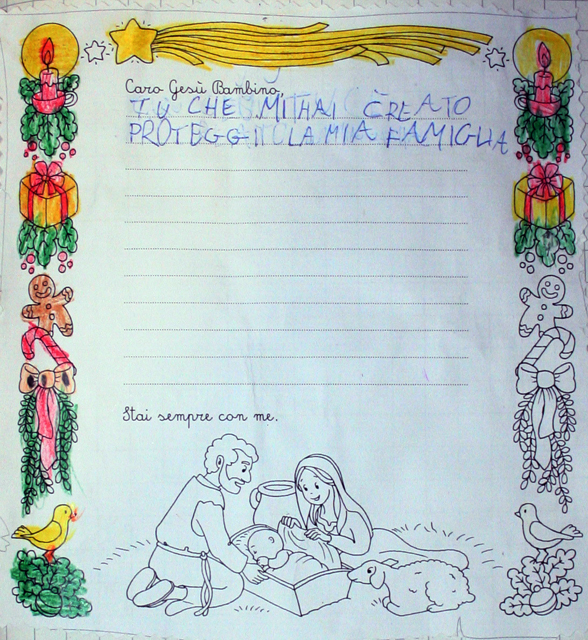 Caro Gesù Bambino,
TU CHE MI HAI CREATO
PROTEGGI LA MIA FAMIGLIA
Stai sempre con me.